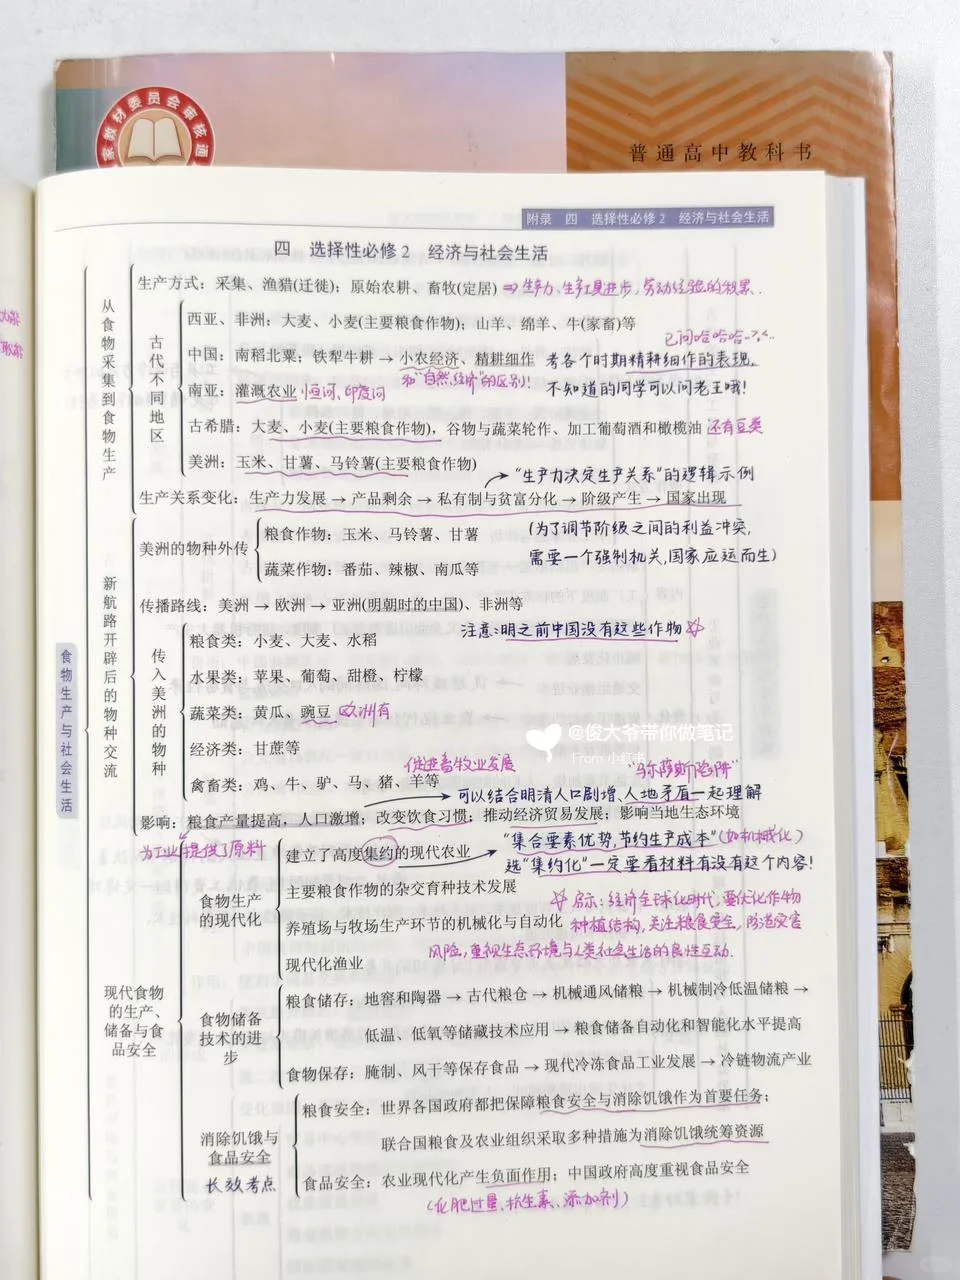 家教材委员会审核通
普通高中教科书
附录 四 选择性必修2 经济与社会生活
四 选择性必修2 经济与社会生活
食物生产与社会生活
从食物采集到食物生产
生产方式：采集、渔猎(迁徙)；原始农耕、畜牧(定居) ⇒ 生产力、生产工具进步，劳动经验的积累.
古代不同地区
西亚、非洲：大麦、小麦(主要粮食作物)；山羊、绵羊、牛(家畜)等
已问哈哈哈
中国：南稻北粟；铁犁牛耕 → 小农经济、精耕细作 考各个时期精耕细作的表现，
和"自然经济"的区别！
不知道的同学可以问老王哦！
南亚：灌溉农业 恒河、印度河
古希腊：大麦、小麦(主要粮食作物)，谷物与蔬菜轮作、加工葡萄酒和橄榄油 还有豆类
美洲：玉米、甘薯、马铃薯(主要粮食作物)
"生产力决定生产关系"的逻辑示例
生产关系变化：生产力发展 → 产品剩余 → 私有制与贫富分化 → 阶级产生 → 国家出现
(为了调节阶级之间的利益冲突，
需要一个强制机关，国家应运而生)
新航路开辟后的物种交流
美洲的物种外传
粮食作物：玉米、马铃薯、甘薯
蔬菜作物：番茄、辣椒、南瓜等
传播路线：美洲 → 欧洲 → 亚洲(明朝时的中国)、非洲等
注意：明之前中国没有这些作物
传入美洲的物种
粮食类：小麦、大麦、水稻
水果类：苹果、葡萄、甜橙、柠檬
蔬菜类：黄瓜、豌豆 欧洲有
经济类：甘蔗等
禽畜类：鸡、牛、驴、马、猪、羊等
促进畜牧业发展
"马尔萨斯陷阱"
可以结合明清人口剧增、人地矛盾一起理解
影响：粮食产量提高，人口激增；改变饮食习惯；推动经济贸易发展；影响当地生态环境
为工业提供了原料
现代食物的生产、储备与食品安全
食物生产的现代化
建立了高度集约的现代农业
"集合要素优势，节约生产成本"(如机械化)
选"集约化"一定要看材料有没有这个内容！
主要粮食作物的杂交育种技术发展
养殖场与牧场生产环节的机械化与自动化
现代化渔业
启示：经济全球化时代，要优化作物
种植结构，关注粮食安全，防范灾害
风险，重视生态环境与人类社会生活的良性互动.
食物储备技术的进步
粮食储存：地窖和陶器 → 古代粮仓 → 机械通风储粮 → 机械制冷低温储粮 →
低温、低氧等储藏技术应用 → 粮食储备自动化和智能化水平提高
食物保存：腌制、风干等保存食品 → 现代冷冻食品工业发展 → 冷链物流产业
消除饥饿与食品安全
长效考点
粮食安全：世界各国政府都把保障粮食安全与消除饥饿作为首要任务；
联合国粮食及农业组织采取多种措施为消除饥饿统筹资源
食品安全：农业现代化产生负面作用；中国政府高度重视食品安全
(化肥过量、抗生素、添加剂)
@俊大爷带你做笔记
From 小红书